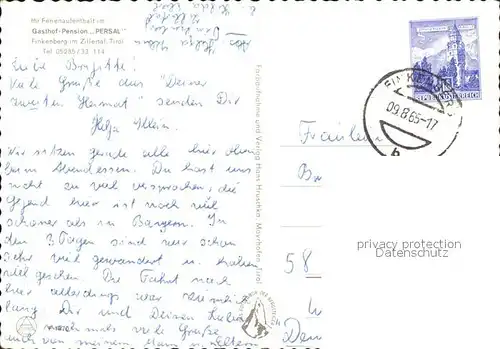 Ihr Ferienaufenthalt im
Gasthof-Pension „PERSAL"
Finkenberg im Zillertal, Tirol
Tel. 05285/33 114
Liebe Brigitte!
Viele Grüße aus "Deiner
zweiten Heimat" senden Dir
Helga Klein.
Wir sitzen gerade alle hier oben
beim Abendessen. Du hast uns
nicht zu viel versprochen, die
Gegend hier ist noch viel
schöner als in Bayern. In
den 3 Tagen sind wir schon
sehr viel gewandert u. haben
viel gesehen. Die Fahrt nach
hier allerdings war ziemlich
lang. Dir und Deinen Lieben
nochmals viele Grüße
auch von meinem Mann u. Eltern
Farbaufnahme und Verlag Hans Hruschka, Mayrhofen, Tirol
REPUBLIK ÖSTERREICH
09.8.65-17
b
Fräulein
Br
58
privacy protection
Datenschutz